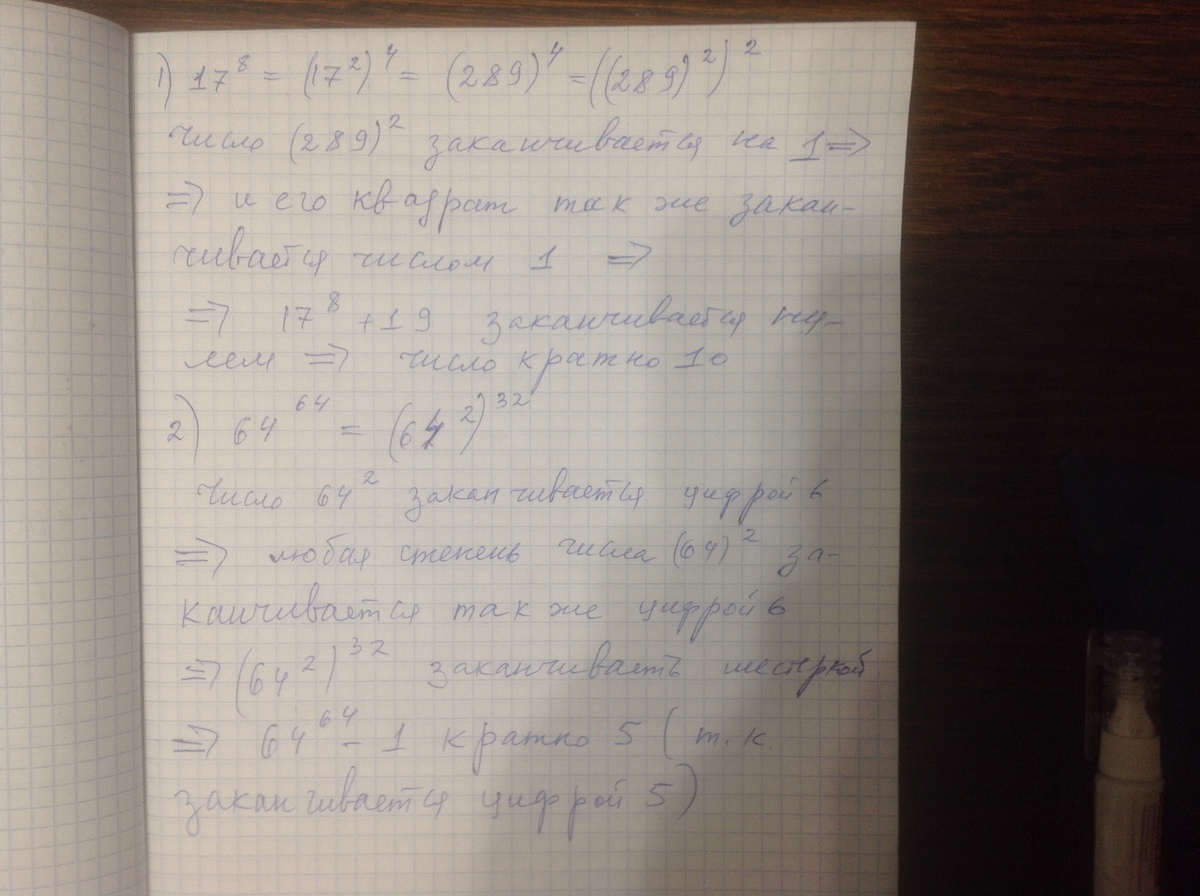 1) 17⁸ = (17²)⁴ = (289)⁴ = ((289)²)²
число (289)² заканчивается на 1 ⇒
⇒ и его квадрат так же закан-
чивается числом 1 ⇒
⇒ 17⁸ + 19 заканчивается ну-
лем ⇒ число кратно 10
2) 64⁶⁴ = (64²)³²
Число 64² заканчивается цифрой 6
⇒ любая степень числа (64)² за-
канчивается так же цифрой 6
⇒ (64²)³² заканчивается шестеркой
⇒ 64⁶⁴ - 1 кратно 5 (т.к.
заканчивается цифрой 5)